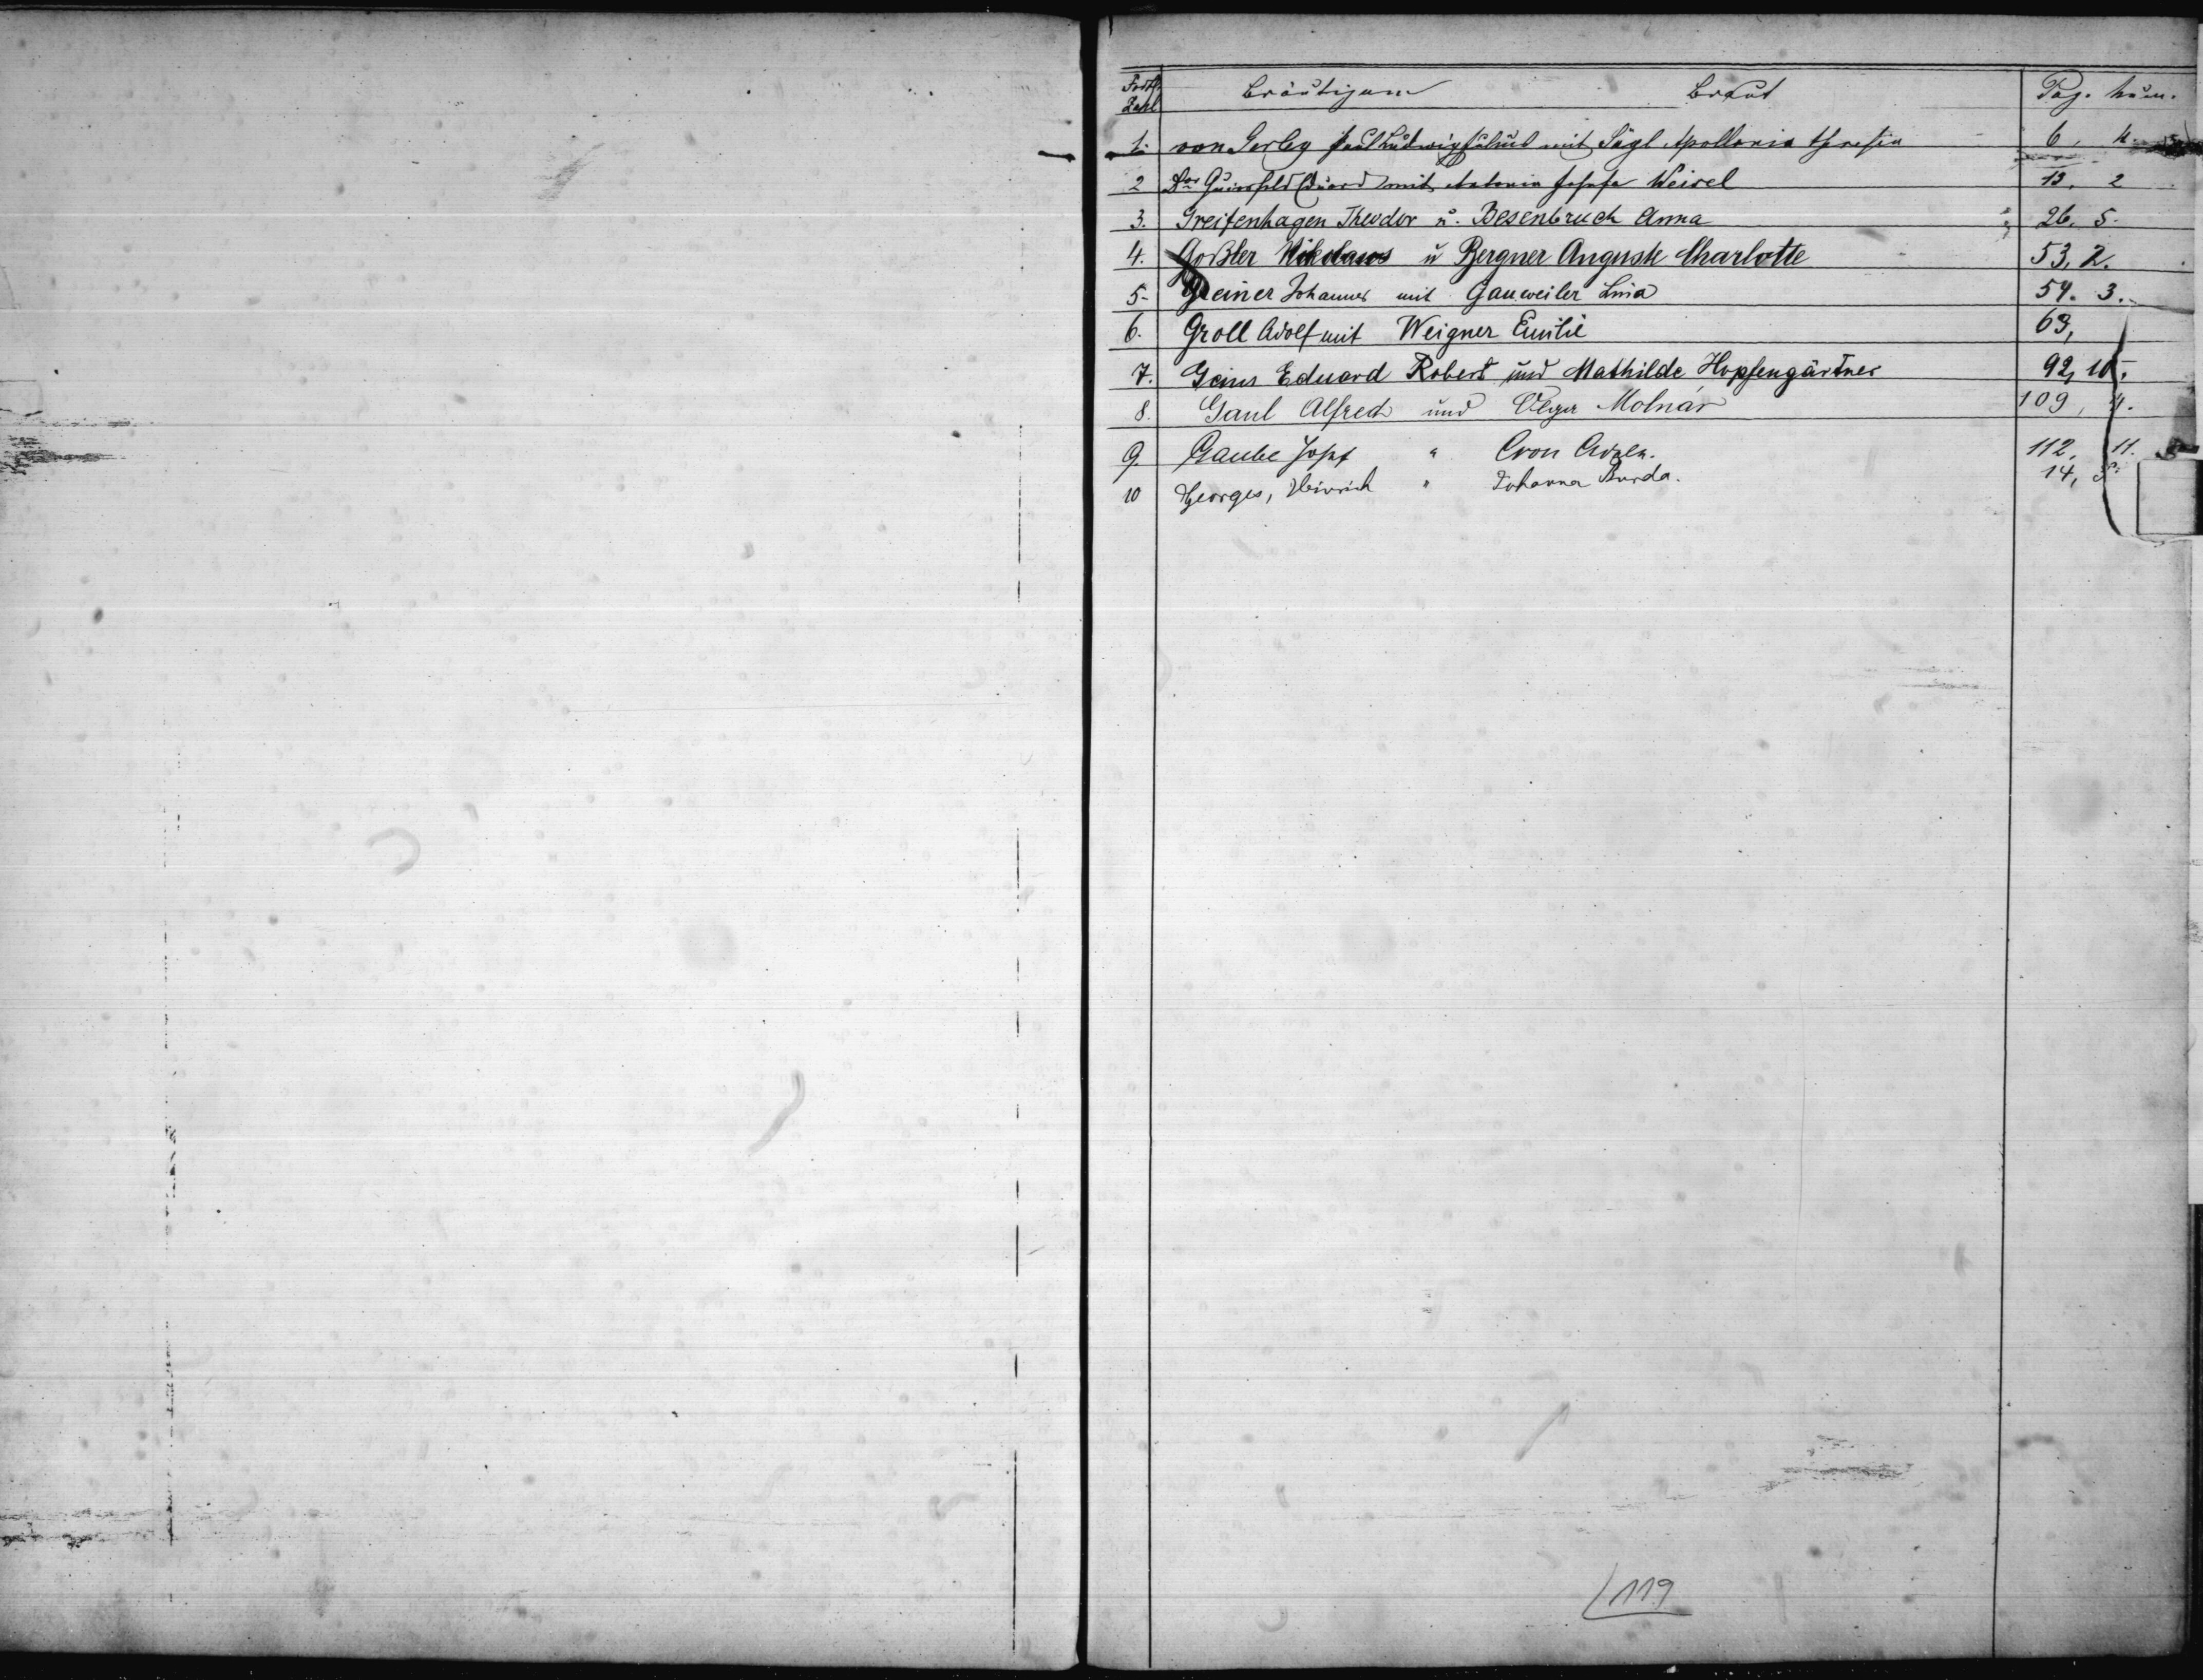 Fortl. Zahl Bräutigam Braut Pag. Num.
1. von Gerley Paul Ludwig mit Sägl Apollonia Theresia 6, 4.
2 Dor Eduard mit Antonia Josefa Weisel 13, 2
3. Greifenhagen Theodor u. Besenbruch Anna 26, 5.
4. Goßler Nikolaus u Bergner Auguste Charlotte 53, 2.
5. Greiner Johannes mit Gauweiler Lina 54. 3.
6. Groll Adolf mit Weigner Emilie 63,
7. Geius Eduard Robert und Mathilde Hopfengärtner 92, 10.
8. Gaul Alfred und Olga Molnár 109, 4.
9. Gaube Josef " Cron Adele. 112, 11.
10 Georges, Heinrich " Johanna Burda. 14,
119